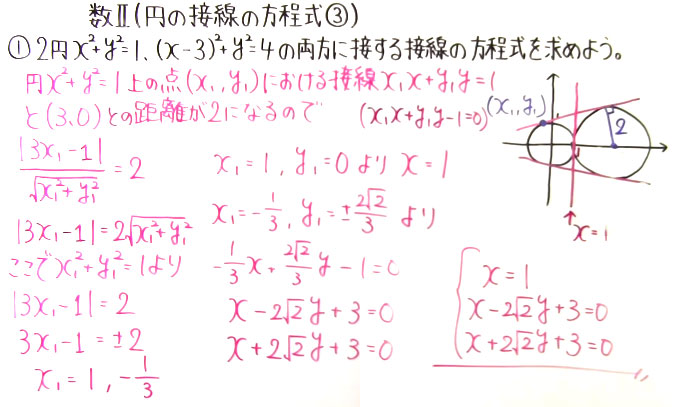 数Ⅱ(円の接線の方程式③)
① 2円x²+y²=1、(x-3)²+y²=4の両方に接する接線の方程式を求めよう。
円x²+y²=1上の点(x₁, y₁)における接線x₁x+y₁y=1
と(3,0)との距離が2になるので (x₁x+y₁y-1=0)
|3x₁-1|/√(x₁²+y₁²) = 2
|3x₁-1|=2√(x₁²+y₁²)
ここでx₁²+y₁²=1より
|3x₁-1|=2
3x₁-1=±2
x₁=1, -1/3
x₁=1, y₁=0より x=1
x₁=-1/3, y₁=±2√2/3 より
-1/3x+2√2/3y-1=0
x-2√2y+3=0
x+2√2y+3=0
(x₁, y₁)
2
x=1
x=1
x-2√2y+3=0
x+2√2y+3=0